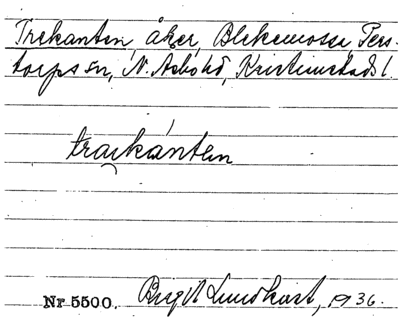 Trekanten, åker, Blekemossa, Pers-
torps sn, N. Åsbo hd, Kristianstads l.
trai̯kánten
Nr 5500. Birgit Lundkvist, 1936.